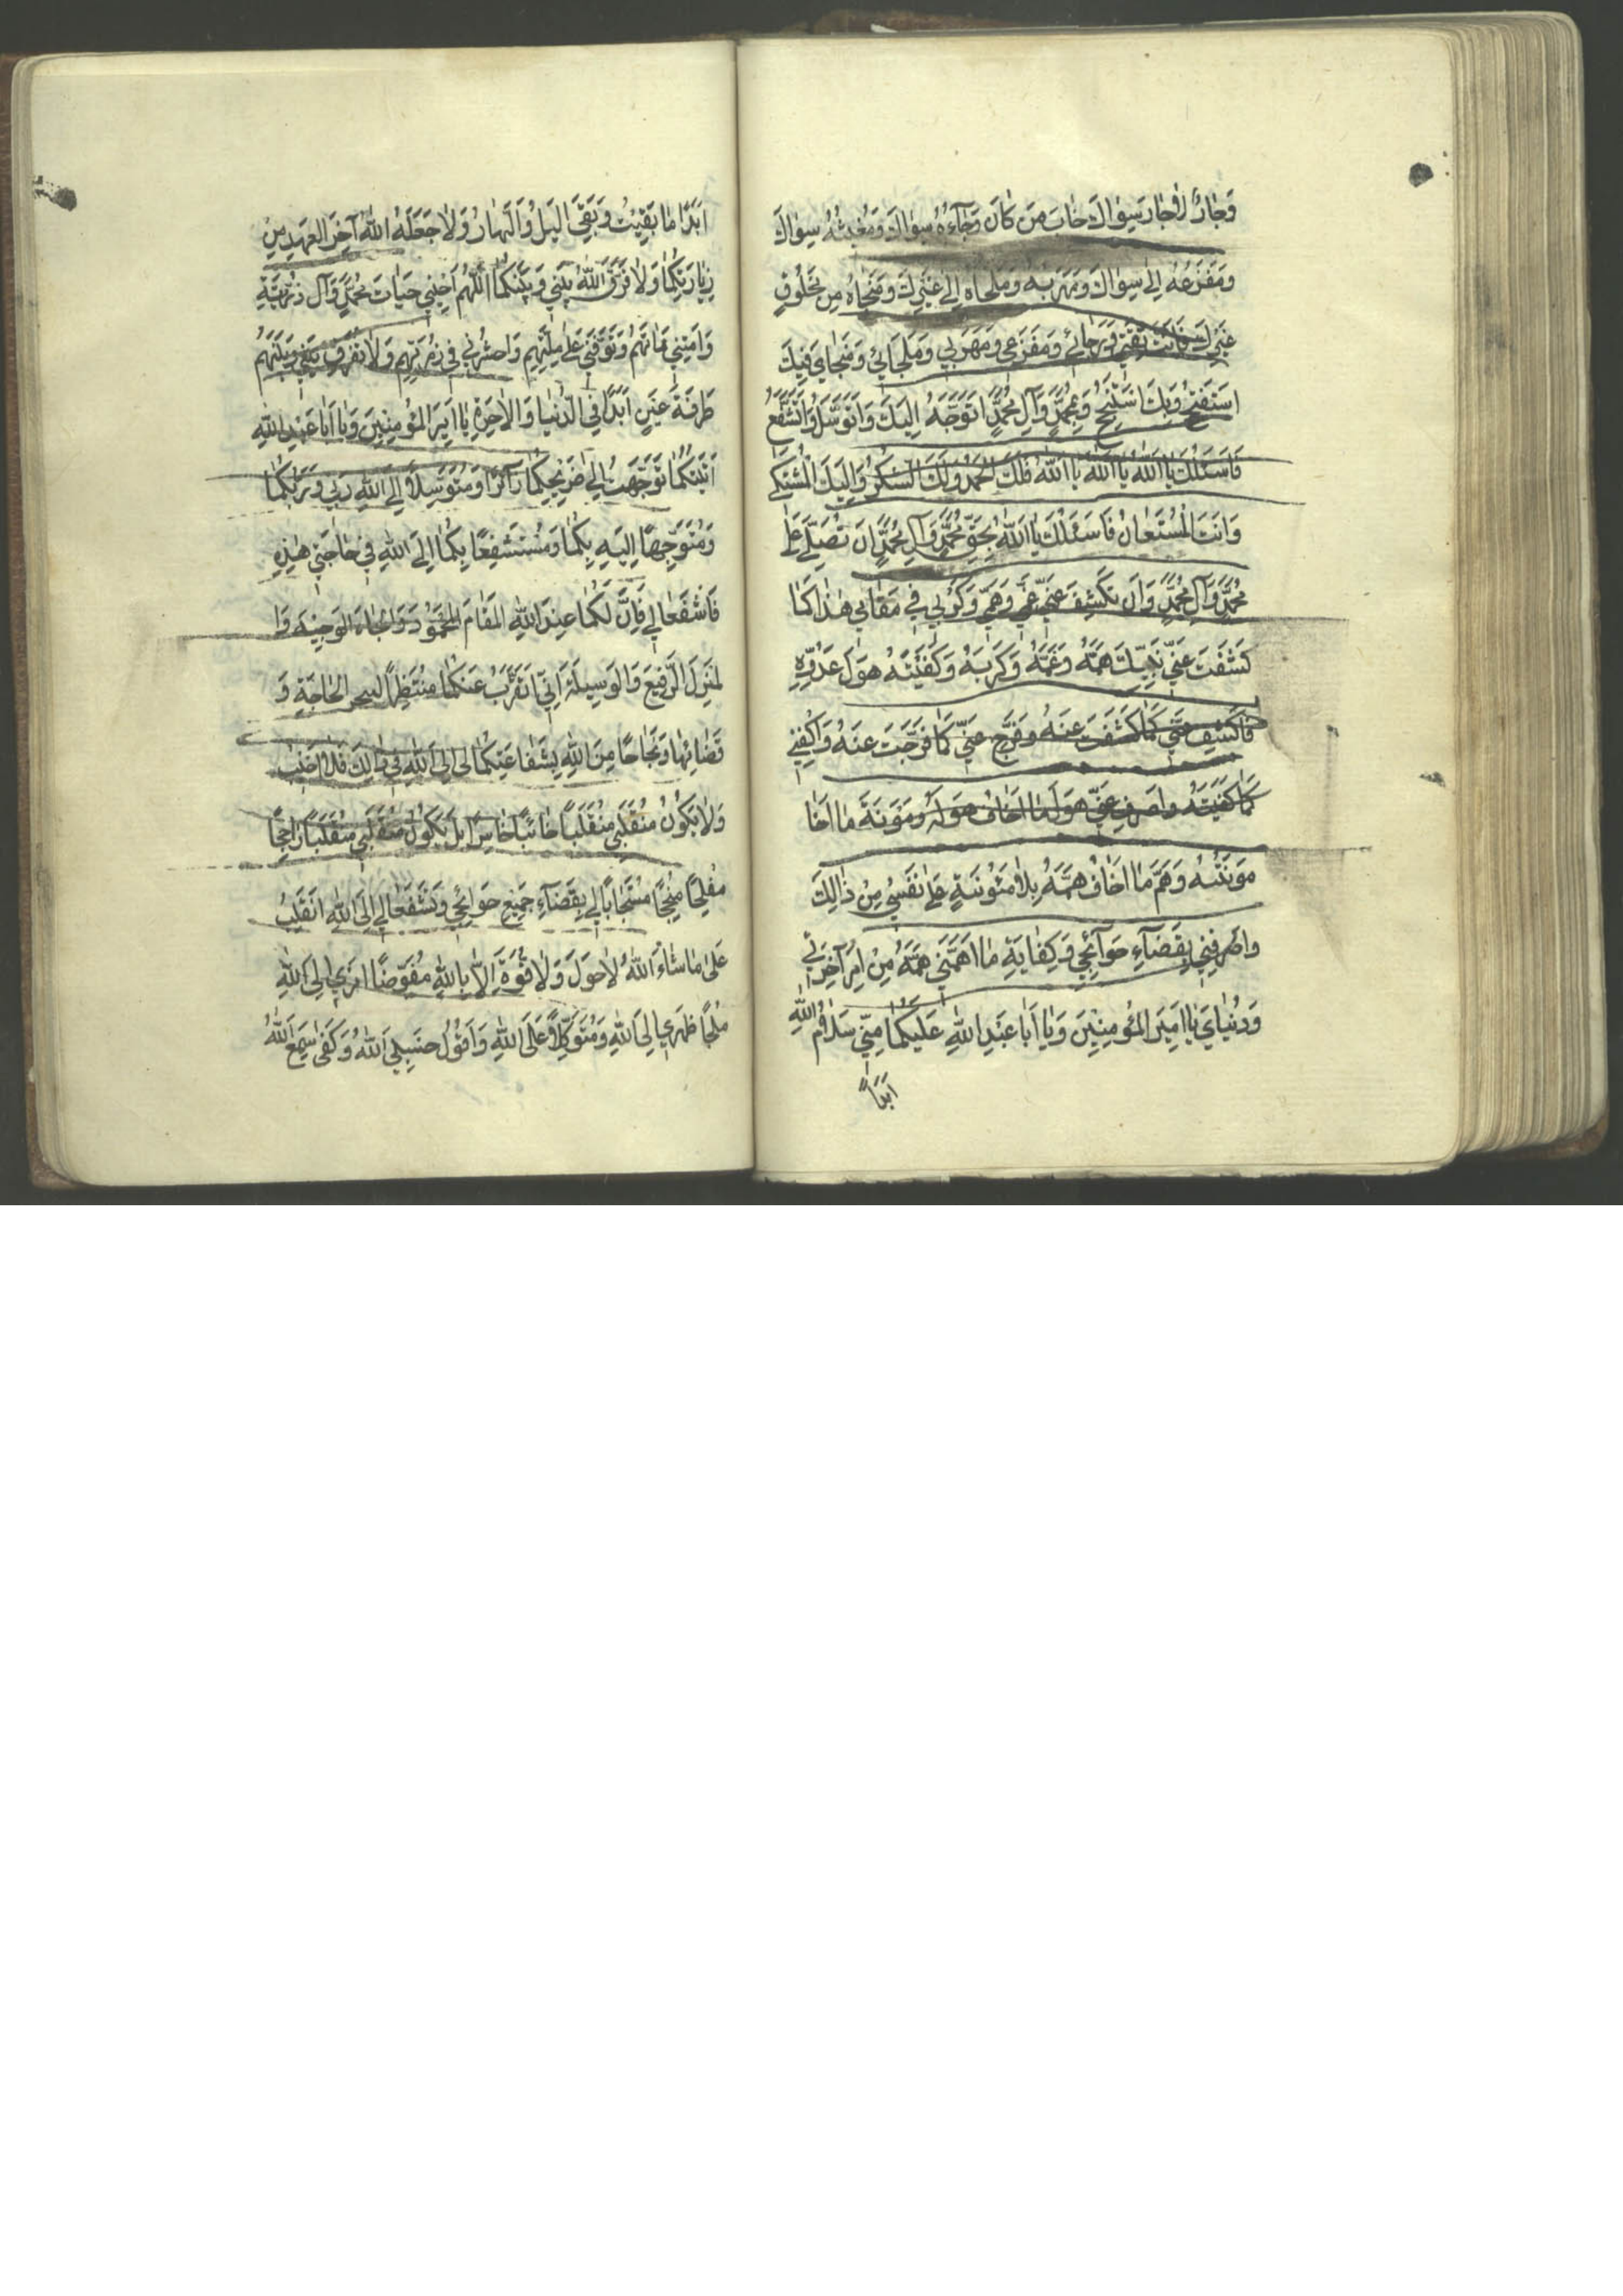 وَجَارُ لاٰ جٰارَ سِوٰاكَ خٰابَ مَن كَانَ رَجٰآءُهُ سِوٰاكَ وَمُغيثُهُ سِوٰاكَ
وَمَفْزَعُهُ اِلىٰ سِوٰاكَ وَمَهْرَبُهُ وَمَلجَاه اِلى غَيْرِكَ وَمَنجٰاهُ مِن مَخْلُوقٍ
غَيْرِكَ فَاَنْتَ ثِقَتي وَرَجٰائي وَمَفْزَعي وَمَهْرَبي وَمَلْجَائي وَمَنْجٰايَ فَبِكَ
اَسْتَفْتِحُ وَبِكَ اَسْتَنْجِحُ وَبِمُحَمَّدٍ وَآلِ مُحَمَّدٍ اَتَوَجَّهُ اِلَيْكَ وَاَتَوَسَّلُ وَاَتَشَفَّعُ
فَاَسْئَلُكَ يٰا اَللهُ يٰا اَللهُ يٰا اَللهُ فَلَكَ الْحَمْدُ وَلَكَ الشُّكْرُ وَاِلَيْكَ الْمُشْتَكىٰ
وَاَنْتَ الْمُسْتَعٰانُ فَاَسْئَلُكَ يٰا اَللهُ بِحَقِّ مُحَمَّدٍ وَآلِ مُحَمَّدٍ اَن تُصَلِّيَ عَلىٰ
مُحَمَّدٍ وَآلِ مُحَمَّدٍ وَاَن تَكْشِفَ عَنّي غَمّي وَهَمّي وَكَرْبي في مَقٰامي هٰذا كَمٰا
كَشَفْتَ عَنْ نَبِيِّكَ هَمَّهُ وَغَمَّهُ وَكَرْبَهُ وَكَفَيْتَهُ هَوْلَ عَدُوِّهِ
فَاكْشِفْ عَنّي كَمٰا كَشَفْتَ عَنْهُ وَفَرِّجْ عَنّي كَمٰا فَرَّجْتَ عَنْهُ وَاكْفِني
كَمٰا كَفَيْتَهُ وَاصْرِفْ عَنّي هَوْلَ مٰا اَخٰافُ هَوْلَهُ وَمَؤنَةَ مٰا اَخٰا
مَؤنَتَهُ وَهَمَّ مٰا اَخٰافُ هَمَّهُ بِلاٰ مَئُونَةٍ عَلىٰ نَفْسي مِنْ ذٰالِكَ
وَاصْرِفْني بِقَضٰآءِ حَوٰآئِجي وَكِفٰايَةِ مٰا اَهَمَّني هَمُّهُ مِنْ اَمْرِ آخِرَتي
وَدُنْيٰايَ يٰا اَميرَ الْمُؤْمِنينَ وَيٰا اَبٰا عَبْدِ اللهِ عَلَيْكُمٰا مِنّي سَلاٰمُ اللهِ
اَبَدًا
اَبَدًا مٰا بَقيتُ وَبَقِيَ اللَيْلُ وَالنَّهٰارُ وَلاٰ جَعَلَهُ اللهُ آخِرَ الْعَهْدِ مِنْ
زِيٰارَتِكُمٰا وَلاٰ فَرَّقَ اللهُ بَيْني وَبَيْنَكُمٰا اَللّهُمَّ اَحْيِني حَيٰاتَ مُحَمَّدٍ وَآل ذُرِّيَّتِهِ
وَاَمِتْني مَمٰاتَهُمْ وَتَوَفَّني عَلىٰ مِلَّتِهِم وَاحْشُرْني في زُمْرَتِهِم وَلاٰ تُفَرِّقْ بَيْني وَبَيْنَهُمْ
طَرْفَةَ عَيْنٍ اَبَدًا فِي الدُّنْيٰا وَالاٰخِرَةِ يٰا اَميرَ الْمُؤْمِنينَ وَيٰا اَبٰا عَبْدِ اللهِ
اَتَيْتُكُمٰا تَوَجَّهْتُ اِلىٰ ضَريحِكُمٰا زٰآئِرًا وَمُتَوَسِّلاً اِلى اللهِ رَبّي وَرَبِّكُمٰا
وَمُتَوَجِّهًا اِلَيْهِ بِكُمٰا وَمُسْتَشْفِعًا بِكُمٰا اِلَى اللهِ في حٰاجَتي هٰذِهِ
فَاشْفَعٰا لي فَاِنَّ لَكُمٰا عِنْدَ اللهِ الْمَقٰامَ الْمَحْمُودَ وَالْجٰاهَ الْوَجيهَ وَا
لْمَنْزِلَ الرَّفيعَ وَالْوَسيلَةَ اِنّي اَنْقَلِبُ عَنْكُمٰا مُنْتَظِرًا لِتَنَجُّزِ الْحٰاجَةِ وَ
قَضٰائِهٰا وَنَجٰاحًا مِنَ اللهِ بِشَفٰاعَتِكُمٰا لي اِلَى اللهِ في ذٰلِكَ فَلاٰ اَخيبُ
وَلاٰ يَكُونُ مُنْقَلَبي مُنْقَلَبًا خٰائِبًا خٰاسِرًا بَل يَكُونُ مُنْقَلَبي مُنْقَلَبًا رٰاجِحًا
مُفْلِحًا مُنْجِحًا مُسْتَجٰابًا لي بِقَضٰآءِ جَميعِ حَوٰائِجي وَتَشَفَّعٰا لي اِلَى اللهِ اَنْقَلِبُ
عَلىٰ مٰا شٰاءَ اللهُ لاٰ حَوْلَ وَلاٰ قُوَّةَ اِلاّٰ بِاللهِ مُفَوِّضًا اَمْري اِلَى اللهِ
مُلْجِأً ظَهْري اِلَى اللهِ وَمُتَوَكِّلاً عَلَى اللهِ وَاَقُولُ حَسْبِيَ اللهُ وَكَفىٰ سَمِعَ اللهُ